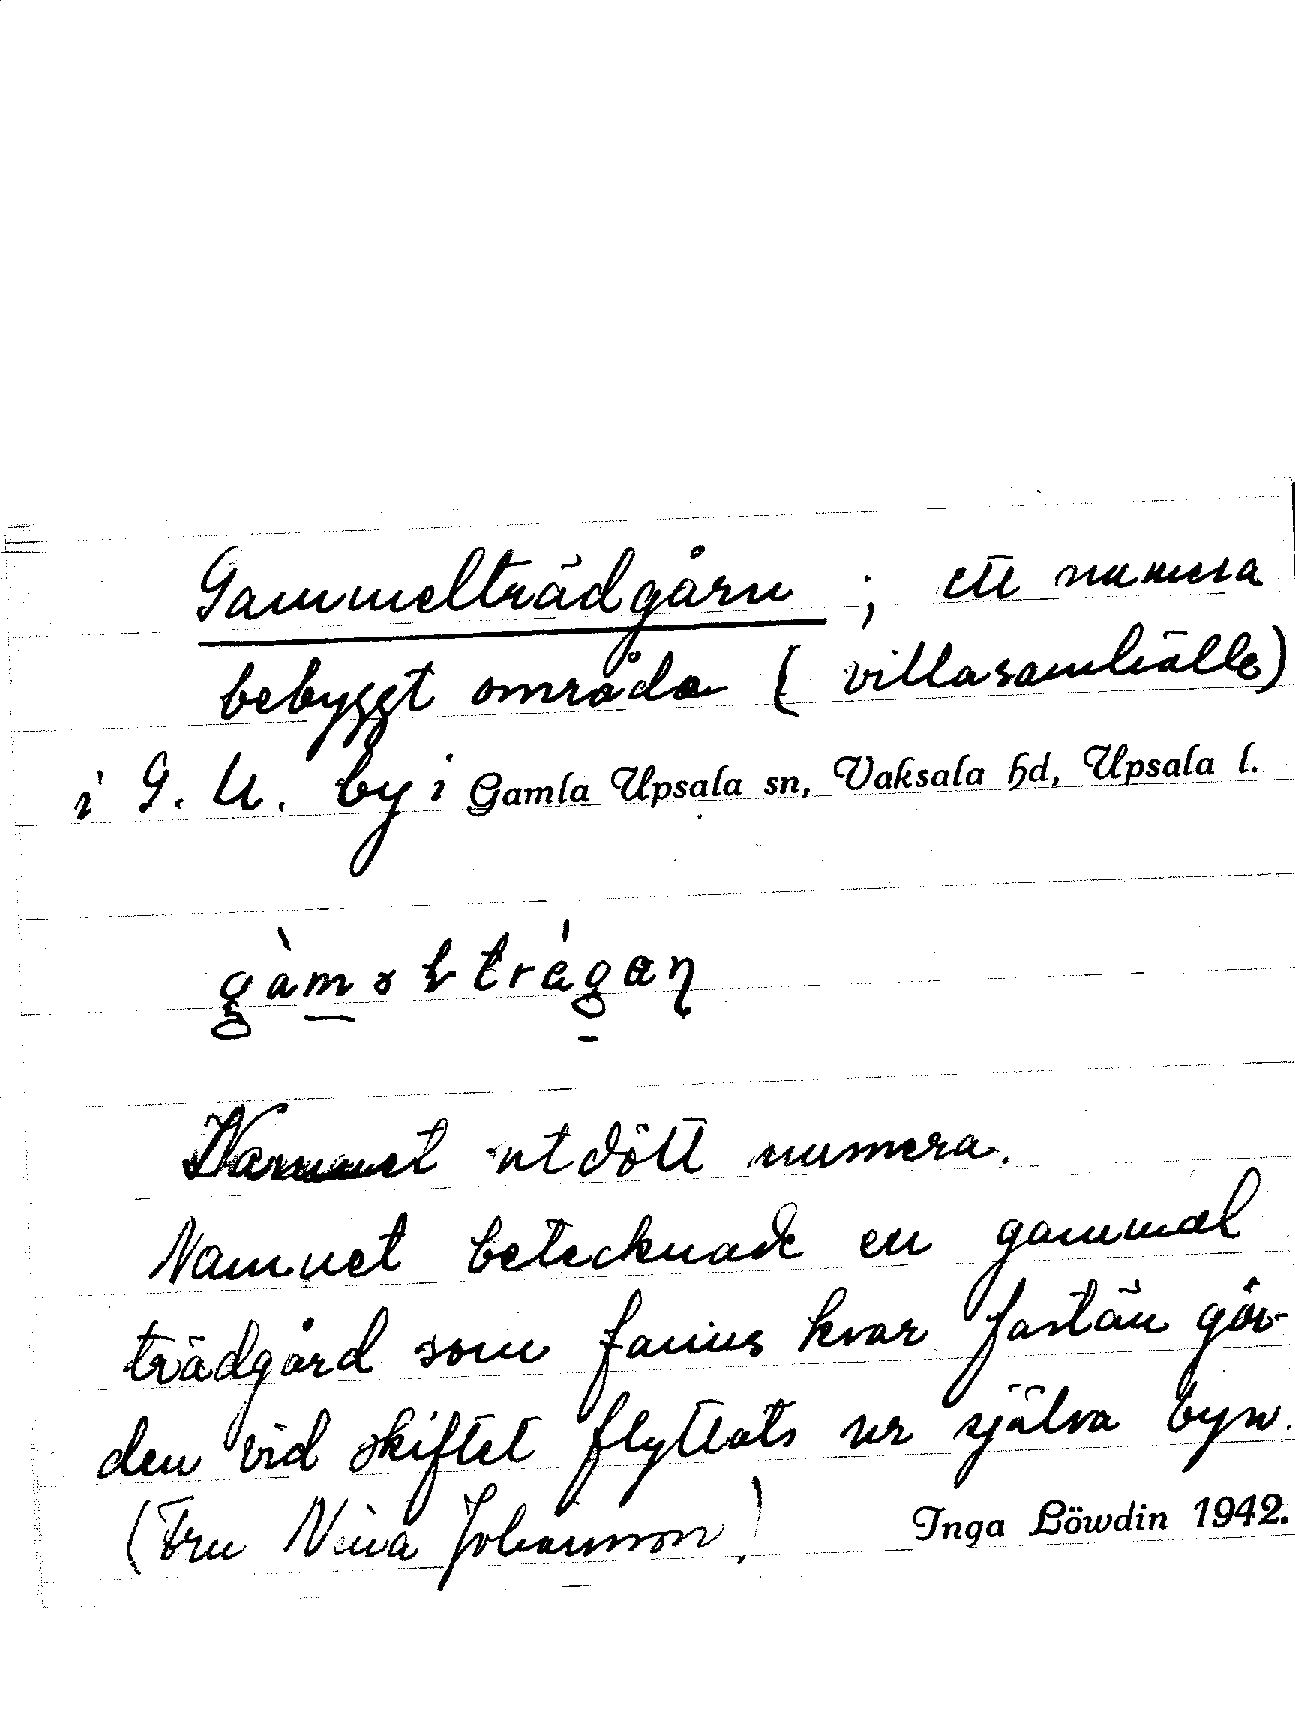 Gammelträdgårn ; ett numera
bebyggt område ( villasamhälle)
i G. U. by i Gamla Upsala sn, Vaksala hd, Upsala l.
Namnet utdött numera.
Namnet betecknade en gammal
trädgård som fanns kvar fastän går-
den vid skiftet flyttats ur själva byn.
(Fru Nina Johansson)
Inga Löwdin 1942.